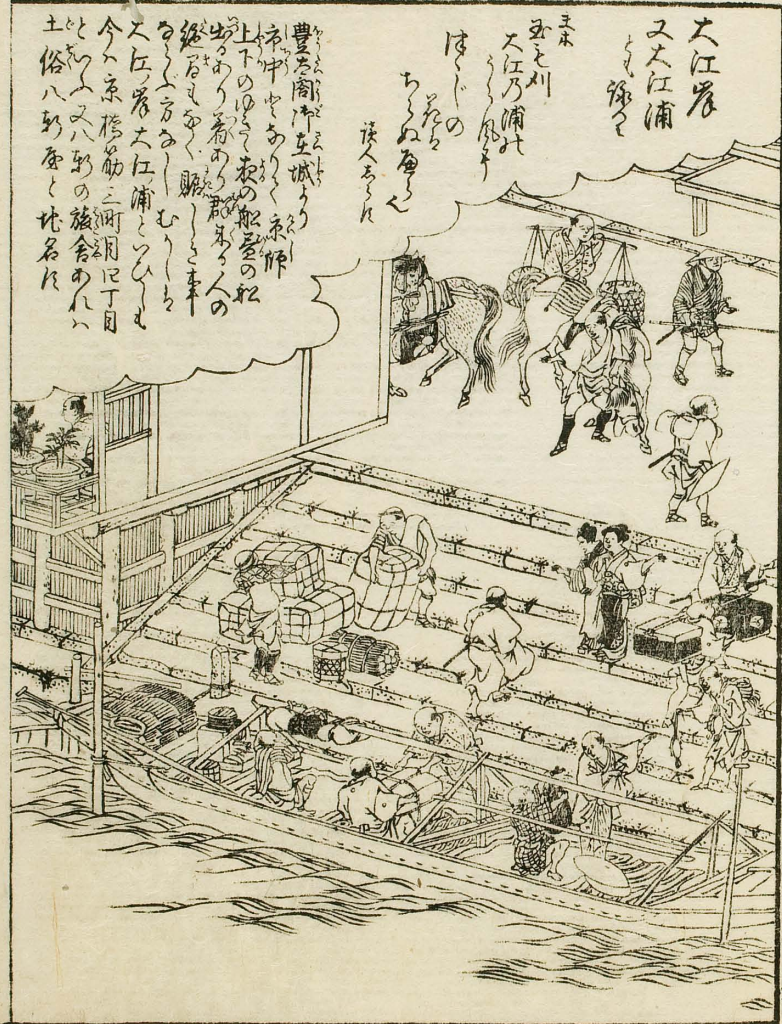 大江岸
又大江浦
とも詠り
夫木
玉も刈
大江乃浦の
うら風に
つゝじの
花は
ちりぬべらん
読人しらず
豊太閤御在城より
市中となりて京師
上下のゆきゝ夜の船昼の船
出るあり着あり群来る人の
絶間もなく賑しき事
ならぶ方なしむかしは
大江の岸大江浦といひしも
今は京橋筋三町目四丁目
といふ又八軒の旅舎あれば
土俗八軒屋と地名す